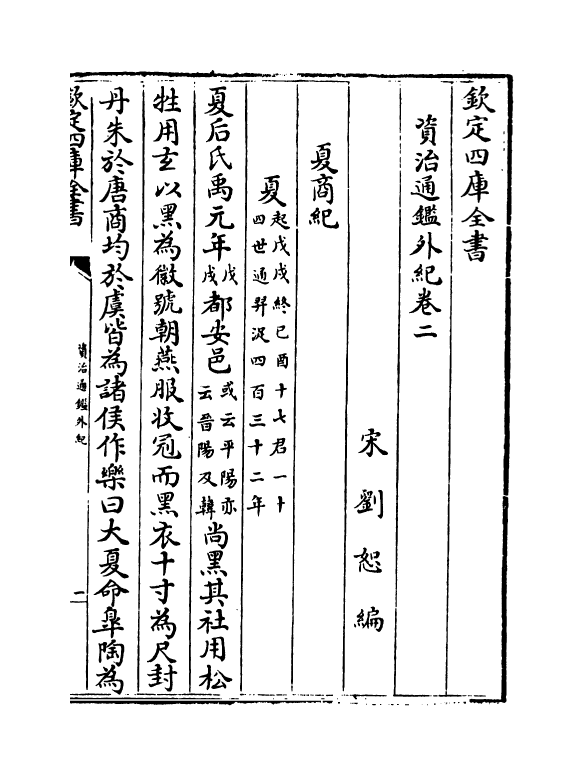 欽定四庫全書
資治通鑑外紀卷二
宋劉恕編
夏商紀
夏起戊戌終己酉十七君一十四世通羿浞四百三十二年
夏后氏禹元年戊戌都安邑或云平陽亦云晉陽及韓尚黑其社用松
牲用玄以黑為徽號朝燕服收冠而黑衣十寸為尺封
丹朱於唐商均於虞皆為諸侯作樂曰大夏命臯陶為
欽定四庫全書
資治通鑑外紀
二